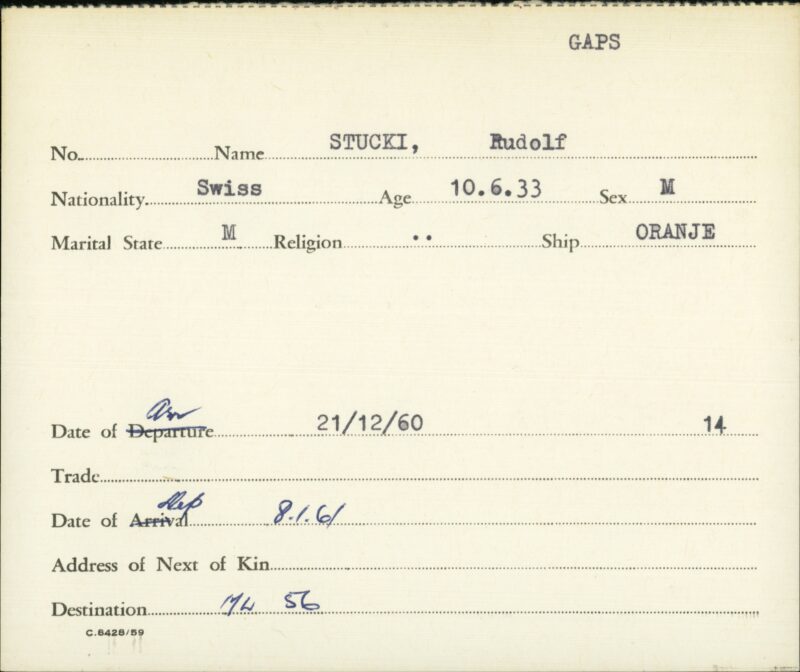 GAPS
No. Name STUCKI, Rudolf
Nationality Swiss Age 10.6.33 Sex M
Marital State M Religion .. Ship ORANJE
Arr
Date of Departure 21/12/60 14
Trade
Dep
Date of Arrival 8.1.61
Address of Next of Kin
Destination 56
C.8428/59